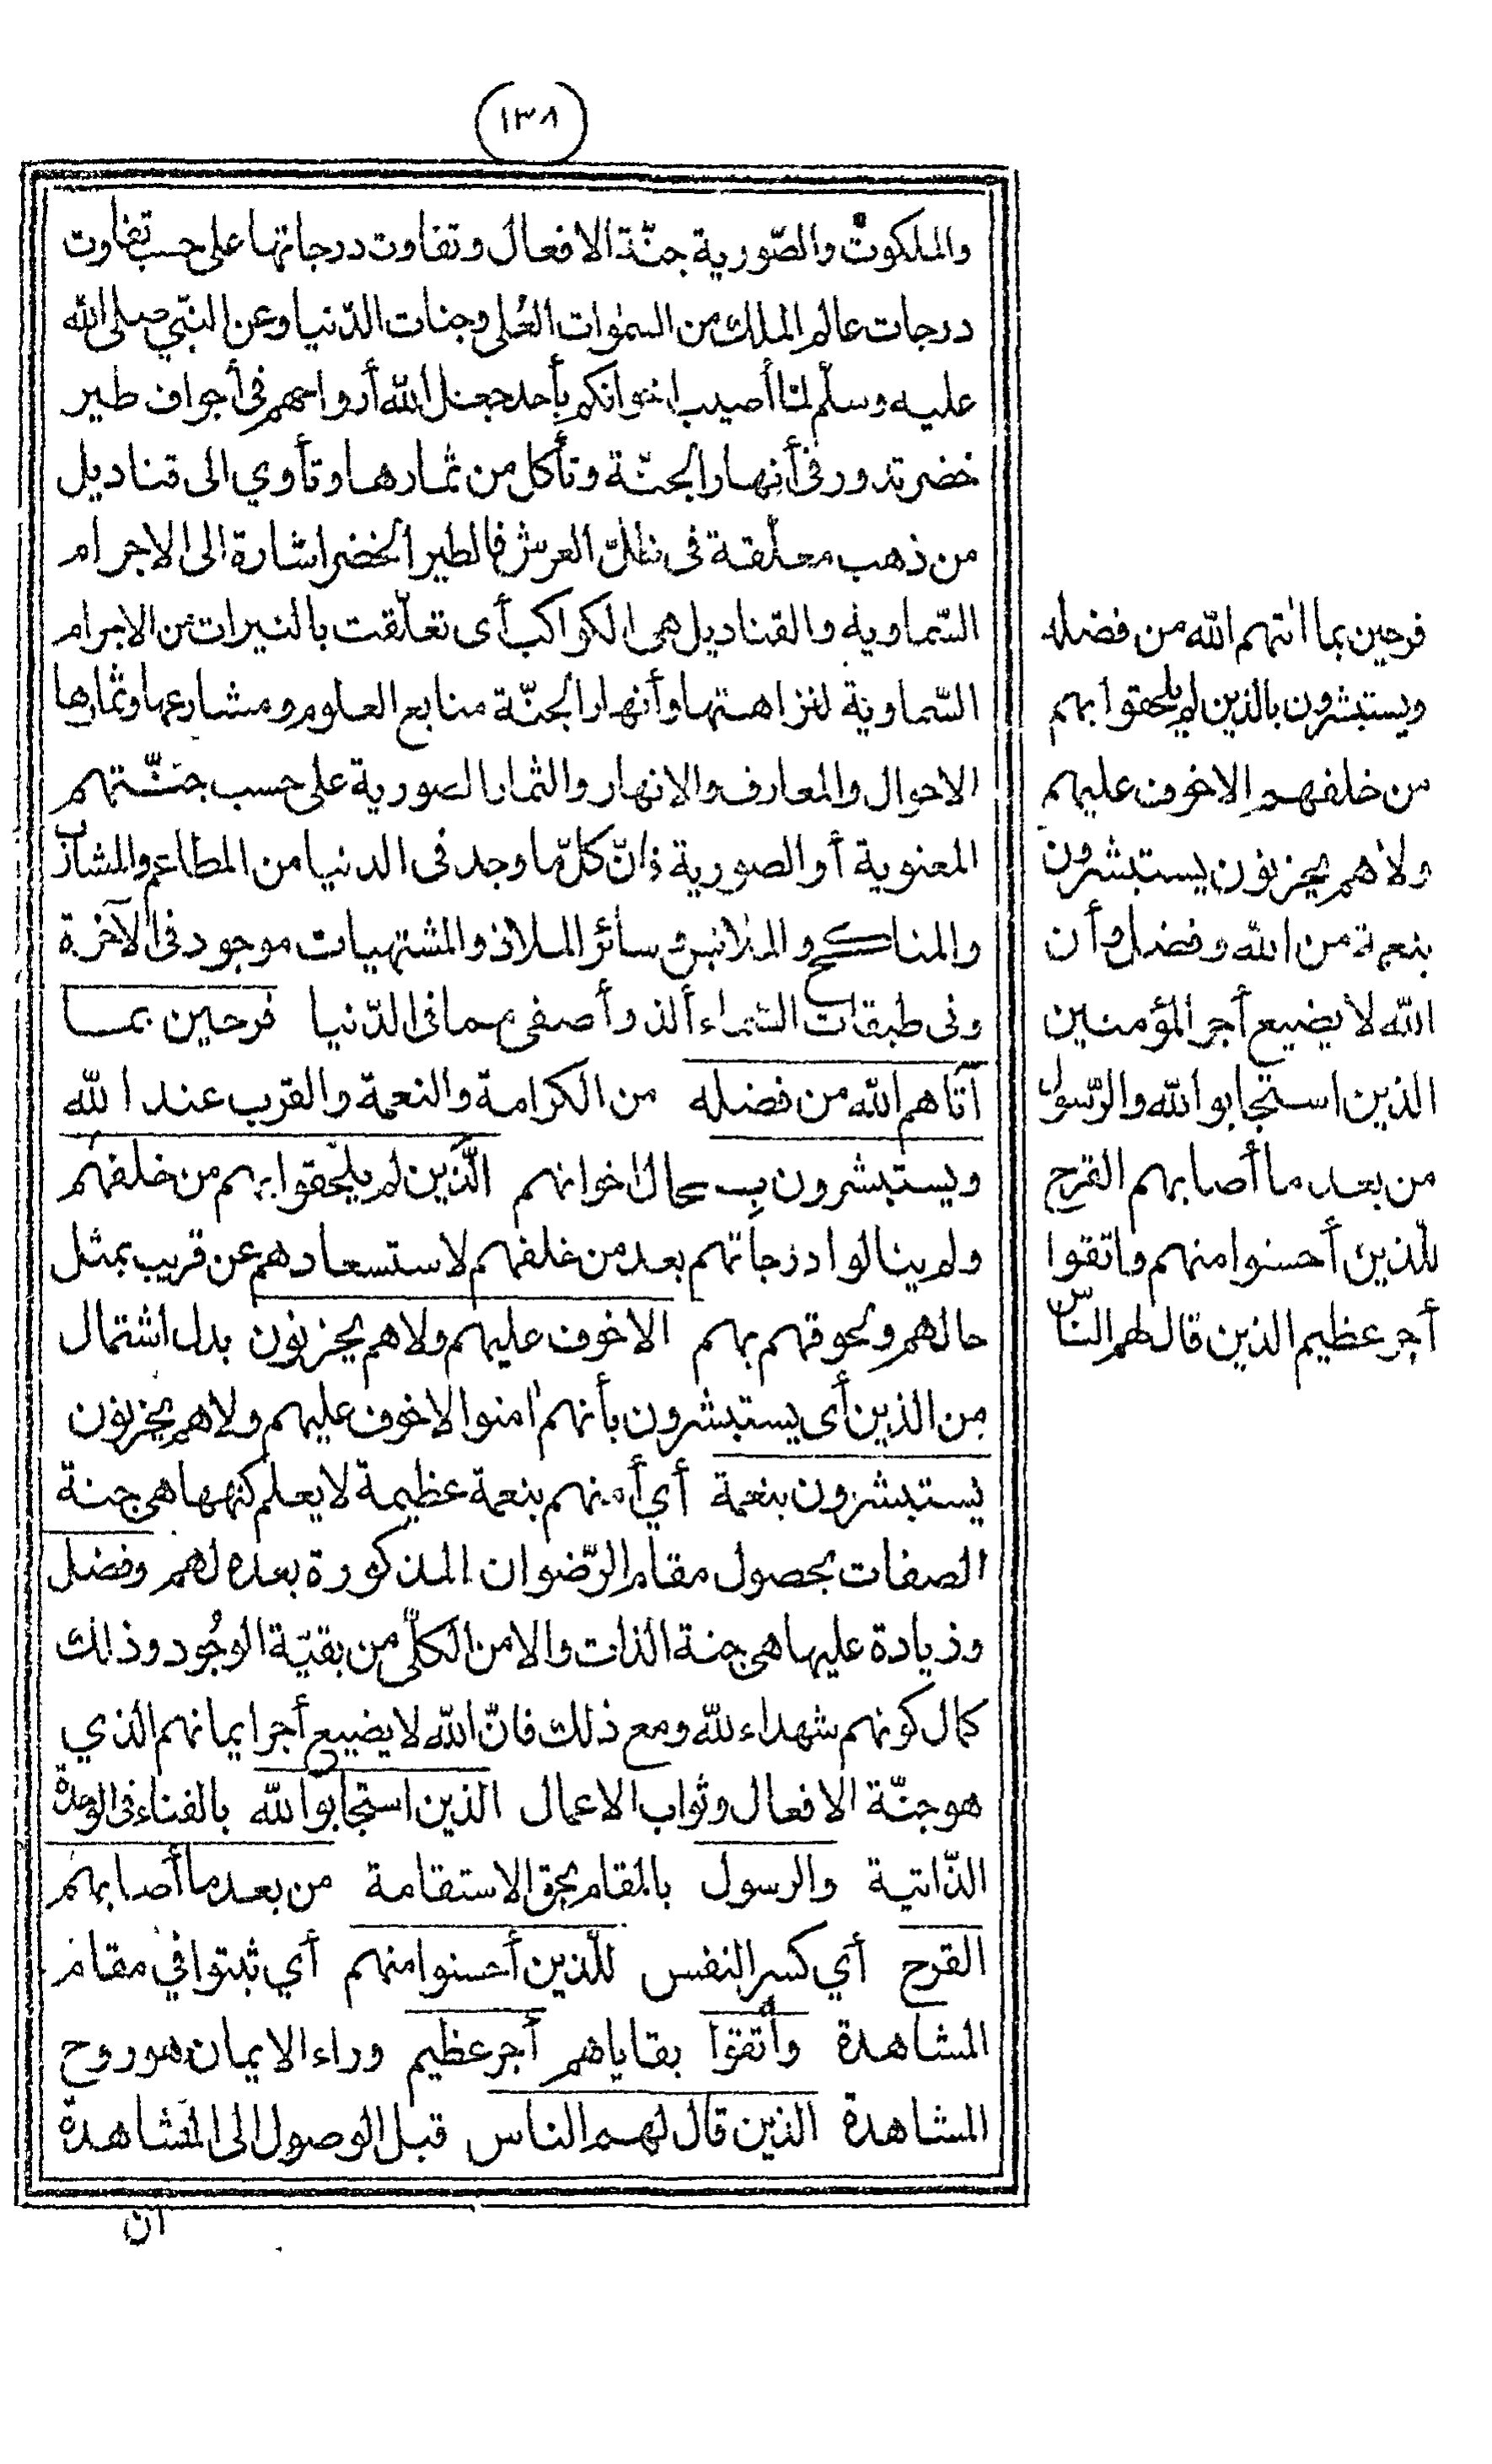 (١٣٨)
والملكوت والصّورية جنّة الافعال وتفاوت درجاتها على حسب تفاوت
درجات عالم الملك من السمٰوات العُلى وجنات الدّنيا وعن النبّي صلى الله
عليه وسلّم لمّا أصيب اخوانكم بأحد جعل الله أرواحهم في أجواف طير
خضر تدور في أنهار الجنّة وتأكل من ثمارها وتأوي الى قناديل
من ذهب معلّقة فى ظلّ العرش فالطير الخضر اشارة الى الاجرام
السّماوية والقناديل هى الكواكب أى تعلّقت بالنيرات من الاجرام
السّماوية لنزاهتها وأنهار الجنّة منابع العلوم ومشارعها وثمارها
الاحوال والمعارف والانهار والثمار الصورية على حسب جنّتهم
المعنوية أو الصورية فانّ كلّ ما وجد فى الدنيا من المطاعم والمشارب
والمناكح والملابس وسائر الملاذ والمشتهيات موجود فى الآخرة
وفى طبقات السّماء ألذ وأصفى مما فى الدّنيا فرحين بما
آتاهم الله من فضله من الكرامة والنعمة والقرب عند الله
ويستبشرون بحال اخوانهم الّذين لم يلحقوا بهم من خلفهم
ولم ينالوا درجاتهم بعد من خلفهم لاستسعادهم عن قريب بمثل
حالهم ولحوقهم بهم الاخوف عليهم ولاهم يحزنون بدل اشتمال
من الذين أى يستبشرون بأنهم اٰمنوا لاخوف عليهم ولاهم يحزنون
يستبشرون بنعمة أي أمنهم بنعمة عظيمة لا يعلم كنهها هى جنة
الصفات بحصول مقام الرّضوان المذكورة بعده لهم وفضل
وزيادة عليها هى جنة الذات والامن الكلّى من بقيّة الوجُود وذلك
كمال كونهم شهداء لله ومع ذلك فانّ الله لا يضيع أجر ايمانهم الذي
هو جنّة الافعال وثواب الاعمال الذين استجابوا لله بالفناء فى الوحدة
الذّاتية والرسول بالمقام بحق الاستقامة من بعد ما أصابهم
القرح أي كسر النفس للّذين أحسنوا منهم أي ثبتوا في مقام
المشاهدة واتقوا بقاياهم أجر عظيم وراء الايمان هو روح
المشاهدة الذين قال لهم الناس قبل الوصول الى المشاهدة
ان
فرحين بما اٰتٰهم الله من فضله
ويستبشرون بالذين لم يلحقوا بهم
من خلفهم الاخوف عليهم
ولا هم يحزنون يستبشرون
بنعمة من الله وفضل وأن
الله لا يضيع أجر المؤمنين
الذين استجابوا لله والرّسول
من بعد ما أصابهم القرح
للّذين أحسنوا منهم واتقوا
أجر عظيم الذين قال لهم النّاس